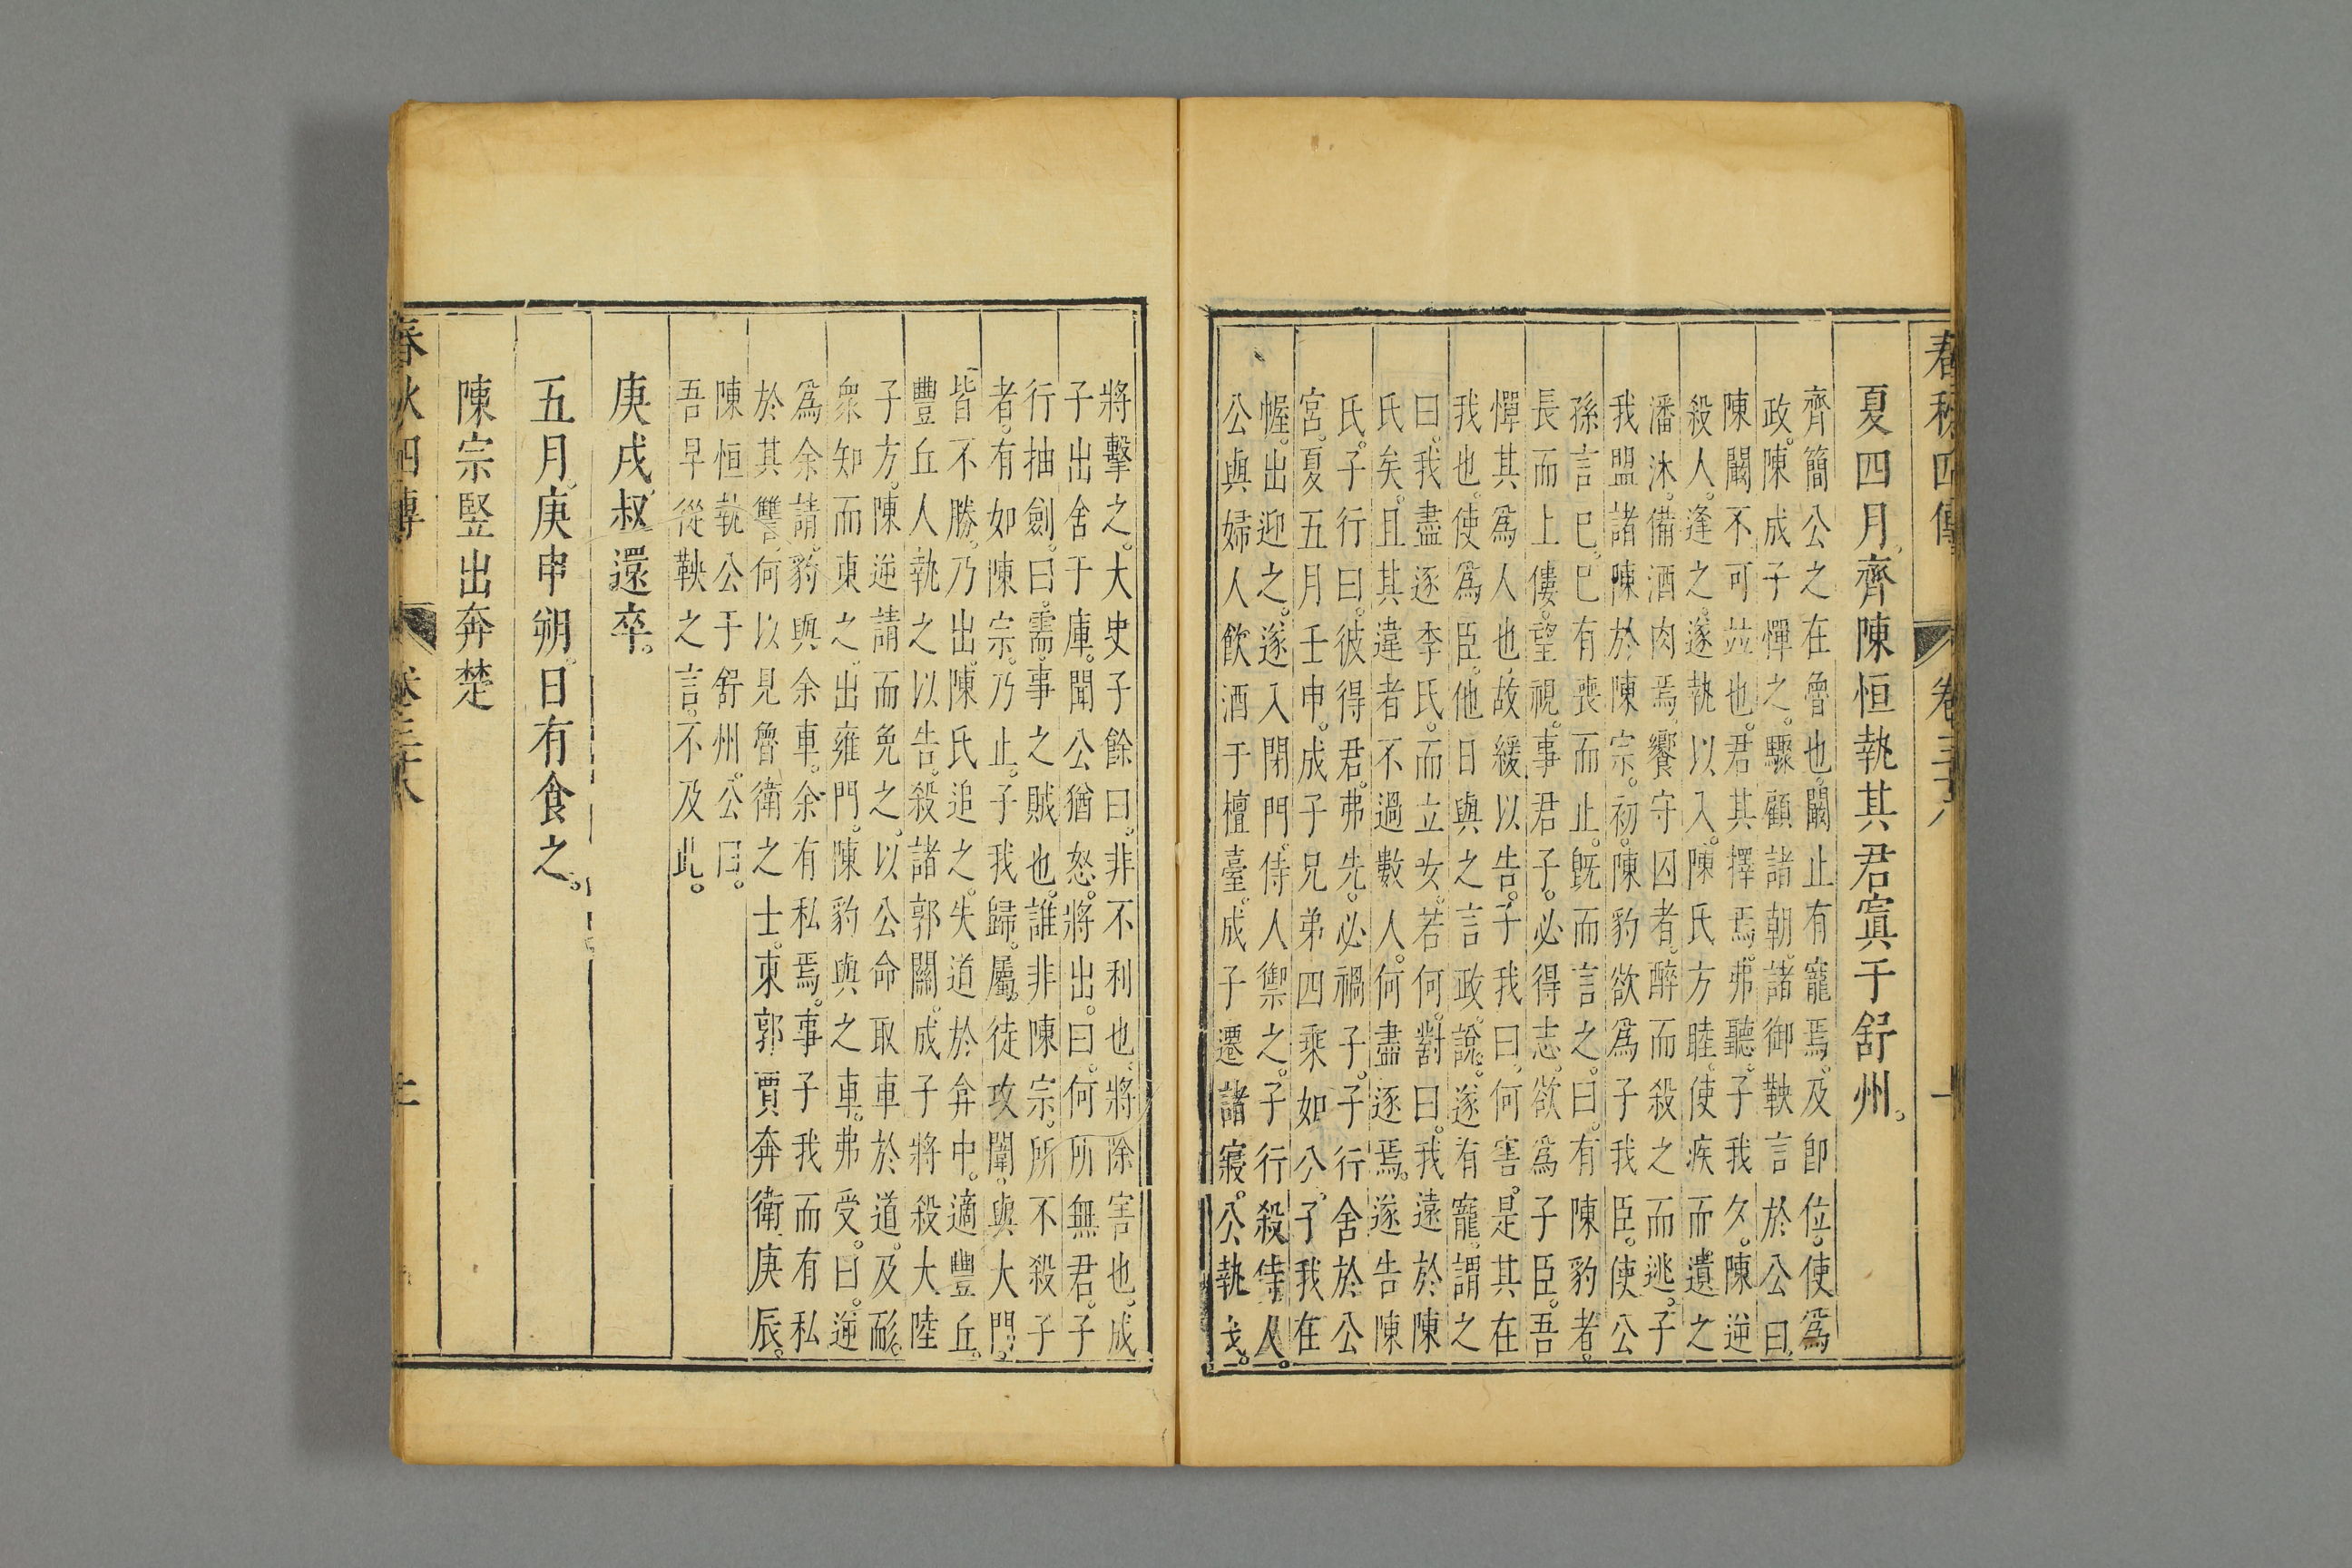 春秋四傳 卷三十八 十
夏四月齊陳恒執其君寘于舒州。
齊簡公之在魯也。闞止有寵焉。及卽位。使爲
政。陳成子憚之。驟顧諸朝。諸御鞅言於公曰。
陳闞不可竝也。君其擇焉。弗聽。子我夕。陳逆
殺人。逢之。遂執以入。陳氏方睦。使疾而遺之
潘沐。備酒肉焉。饗守囚者。醉而殺之而逃。子
我盟諸陳於陳宗。初。陳豹欲爲子我臣。使公
孫言已。已有喪而止。旣而言之。曰。有陳豹者。
長而上僂。望視。事君子。必得志。欲爲子臣。吾
憚其爲人也。故緩以告。子我曰。何害。是其在
我也。使爲臣。他日與之言政。說。遂有寵。謂之
曰。我盡逐李氏。而立女。若何。對曰。我遠於陳
氏矣。且其違者不過數人。何盡逐焉。遂告陳
氏。子行曰。彼得君。弗先。必禍子。子行舍於公
宮。夏五月壬申。成子兄弟四乘如公。子我在
幄。出迎之。遂入閉門。侍人禦之。子行殺侍人。
公與婦人飲酒于檀臺。成子遷諸寢。公執戈。
將擊之。大史子餘曰。非不利也。將除害也。成
子出舍于庫。聞公猶怒。將出。曰。何所無君。子
行抽劍。曰。需。事之賊也。誰非陳宗。所不殺子
者。有如陳宗。乃止。子我歸。屬徒攻闈。與大門。
皆不勝。乃出。陳氏追之。失道於弇中。適豐丘。
豐丘人執之以告。殺諸郭關。成子將殺大陸
子方。陳逆請而免之。以公命取車於道。及耏。
衆知而東之。出雍門。陳豹與之車。弗受。曰。逆
爲余請。豹與余車。余有私焉。事子我而有私
於其讐。何以見魯衛之士。東郭賈奔衛。庚辰。
陳恒執公于舒州。公曰。
吾早從鞅之言。不及此。
庚戌叔還卒。
五月。庚申朔。日有食之。
陳宗竪出奔楚
春秋四傳 卷三十八 十一